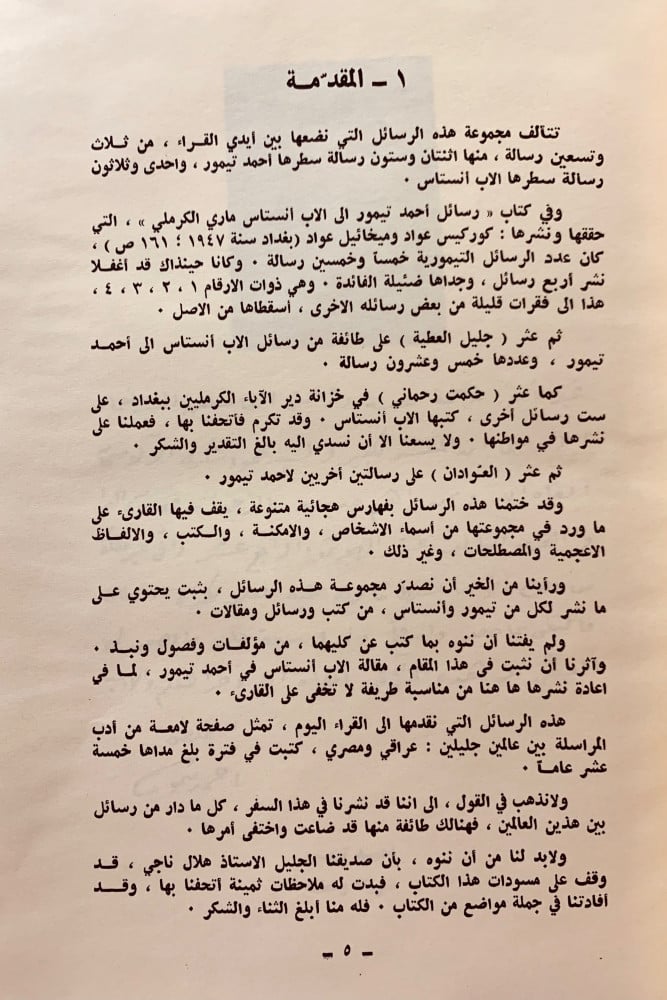 ١ ـ المقدّمـة
تتألف مجموعة هذه الرسائل التي نضعها بين أيدي القراء ، من ثـلاث
وتسعين رسالة ، منها اثنتان وستون رسالة سطرها أحمد تيمور ، واحدى وثلاثون
رسالة سطرها الاب أنستاس ٠
وفي كتاب « رسائل أحمد تيمور الى الاب أنستاس ماري الكرملي » ، التي
حققها ونشرها : كوركيس عواد وميخائيل عواد (بغداد سنة ١٩٤٧ ؛ ١٦١ ص) ،
كان عدد الرسائل التيمورية خمساً وخمسين رسالة ٠ وكانا حينذاك قد أغفـلا
نشر أربع رسائل ، وجداها ضئيلة الفائدة ٠ وهي ذوات الارقام ١ ، ٢ ، ٣ ، ٤ ،
هذا الى فقرات قليلة من بعض رسائله الاخرى ، أسقطاها من الاصل ٠
ثم عثر ( جليل العطية ) على طائفة من رسائل الاب أنستاس الى أحمـد
تيمور ، وعددها خمس وعشرون رسالة ٠
كما عثر ( حكمت رحماني ) في خزانة دير الآباء الكرمليين ببغداد ، على
ست رسائل أخرى ، كتبها الاب أنستاس ٠ وقد تكرم فأتحفنا بها ، فعملنا على
نشرها في مواطنها ٠ ولا يسعنا الا أن نسدي اليه بالغ التقدير والشكر ٠
ثم عثر ( العوّادان ) على رسالتين أخريين لاحمد تيمور ٠
وقد ختمنا هذه الرسائل بفهارس هجائية متنوعة ، يقف فيها القارىء على
ما ورد في مجموعتها من أسماء الاشخاص ، والامكنة ، والـكتب ، والالفـاظ
الاعجمية والمصطلحات ، وغير ذلك ٠
ورأينا من الخير أن نصدّر مجموعة هـذه الرسائل ، بثبت يحتوي علـى
ما نشر لكل من تيمور وأنستاس ، من كتب ورسائل ومقالات ٠
ولم يفتنا أن ننوه بما كتب عن كليهما ، من مؤلفـات وفصول ونبـذ ٠
وآثرنا أن نثبت فى هذا المقام ، مقالة الاب أنستاس في أحمد تيمور ، لمـا في
اعادة نشرها ها هنا من مناسبة طريفة لا تخفى على القارىء ٠
هذه الرسائل التي نقدمها الى القراء اليوم ، تمثل صفحة لامعـة من أدب
المراسلة بين عالمين جليلين : عراقي ومصري ، كتبت في فترة بلغ مداها خمسة
عشر عامـاً ٠
ولانذهب في القول ، الى اننا قد نشرنا في هذا السفر ، كل ما دار من رسائل
بين هذين العالمين ، فهنالك طائفة منها قد ضاعت واختفى أمرها ٠
ولابد لنا من أن ننوه ، بأن صديقنا الجليل الاستاذ هلال ناجي ، قـد
وقف على مسودات هذا الكتاب ، فبدت له ملاحظات ثمينة أتحفنا بها ، وقـد
أفادتنا في جملة مواضع من الكتاب ٠ فله منا أبلغ الثناء والشكر ٠
ـ ٥ ـ